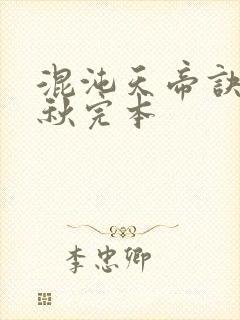 混沌天帝诀
秋完本
李忠卿